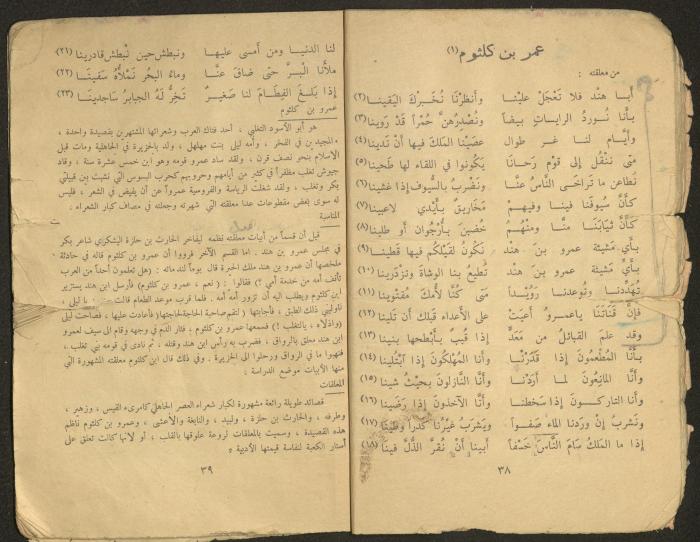 عمر بن كلثوم (١)
من معلقته :
أبا هند فلا تَعْجَل علينا وأنظرْنا نُخَبرْكَ اليَقينا (٢)
بأنا نُوردُ الراياتِ بيضاً ونُصْدِرُهنَّ حُمْراً قَدْ رَوينا (٣)
وأيَّامٍ لنا غرٍ طوال عصَيْنا المَلكَ فيها أنْ نَدينا (٤)
متى ننْقُل إلى قَوْمٍ رَحانا يَكُونوا في اللقاء لها طَحينا (٥)
نُطاعن ما تَراخَى الناسُ عنَّا ونضْربُ بالسُّيوف إذا غشينا (٦)
كأنَّ سيُوفَنا فينا وفيهم مَخاريقٌ بأيْدي لاعبينا (٧)
كأنَّ ثيابَنَا منَّا ومنْهُمْ خُضبنَ بأرْجُوان أو طلينا (٨)
بأي مَشيئة عمرو بنَ هند نَكُونُ لقَيْلكُم فيها قَطينا (٩)
بأيِّ مَشيئة عمرو بن هند تُطيعُ بنا الوشاةَ وتَزْدَرينا (١٠)
تُهَدّدُنا وتُوعدنا رُوَيْداً مَتى كُنَّا لأمكَ مقْتَوينا (١١)
فإنَّ قَنَاتَنَا ياعمرو أعيَتْ على الأعداء قبلَكَ أنْ تَلينا (١٢)
وقد علمَ القبائلُ من مَعَدّ إذا قُببٌ بأبطحها بنينا (١٣)
بأنَّا المُطْعمُونَ إذا قدَرْنا وأنا المُهْلكُونَ إذا ابْتُلينا (١٤)
وأنَّا المانِعُونَ لما أرَدْنا وأنَّا النَّازلونَ بحَيْثُ شينا (١٥)
وأنَّا التاركُونَ إذا سَخطنا وأنَّا الآخذُونَ إذا رَضينا (١٦)
ونَشربُ إنْ ورَدنا الماء صَفْواً ويَشربُ غَيْرُنا كَدراً وطينا (١٧)
إذا ما المَلكُ سَامَ النَّاسَ خَسْفاً أبينا أنْ نُقرَّ الذُّلَّ فينا (١٨)
٣٨
لنا الدنيا ومن أمسى عليها ونبطش حين نَبْطش قادرينا (٢١)
ملأنا البَرَّ حتى ضاقَ عنَّا وماءُ البحْر نَمْلأُهُ سَفينَا (٢٢)
إذا بَلغَ الفِطَامَ لنا صَغيرٌ تَخِرُّ لَهُ الجبابرُ ساجدينَا (٢٣)
عمرو بن كلثوم
هو أبو الأسود التغلبي ، أحد فتاك العرب وشعرائها المشتهرين بقصيدة واحدة ،
المجيدين في الفخر ، وأمه ليلى بنت مهلهل ، ولد بالجزيرة في الجاهلية ومات قبل
الاسلام بنحو نصف قرن ، ولقد ساد عمرو قومه وهو ابن خمس عشرة سنة ، وقاد
جيوش تغلب مظفراً في كثير من أيامهم وحروبهم كحرب البسوس التي نشبت بين قبيلتي
بكر وتغلب ، ولقد شغلت الرياسة والفروسية عمرواً عن أن يفيض في الشعر ، فليس
له سوى بعض مقطوعات عدا معلقته التي شهرته وجعلته في مصاف كبار الشعراء .
المناسبة
قيل أن قسماً من أبيات معلقته نظمه ليفاخر الحارث بن حلزة اليشكري شاعر بكر
في مجلس عمرو بن هند . أما القسم الآخر فرووا أن عمرو بن كلثوم قاله في حادثة
ملخصها أن عمرو بن هند ملك الحيرة قال يوماً لندمائه : (هل تعلمون أحداً من العرب
تأنف أمه من خدمة أمي ؟) فقالوا : (نعم ، عمرو بن كلثوم) فأرسل ابن هند يستزير
ابن كلثوم ويطلب اليه أن تزور أمه أمه . فلما قرب موعد الطعام قالت : يا ليلى ،
ناوليني ذلك الطبق ، فأجابتها (لتقم صاحبة الحاجة لحاجتها) فأعادت عليها ، فصاحت ليلى
(واذلاه ، يالتغلب !) فسمعها عمرو بن كلثوم ، فثار الدم في وجهه وقام الى سيف لعمرو
ابن هند معلق بالرواق ، فضرب به رأس ابن هند وقتله ، ثم نادى في قومه بني تغلب ،
فنهبوا ما في الرواق ورحلوا الى الجزيرة . وفي ذلك قال ابن كلثوم معلقته المشهورة التي
منها الأبيات موضع الدراسة .
المعلقات
قصائد طويلة رائعة مشهورة لكبار شعراء العصر الجاهلي كامرىء القيس ، وزهير ،
وطرفه ، والحارث بن حلزة ، ولبيد ، والنابغة والأعشى ، وعمرو بن كلثوم ناظم
هذه القصيدة ، وسميت بالمعلقات لروعة علوقها بالقلب ، أو لأنها كانت تعلق على
أستار الكعبة لنفاسة قيمتها الأدبية .
٣٩